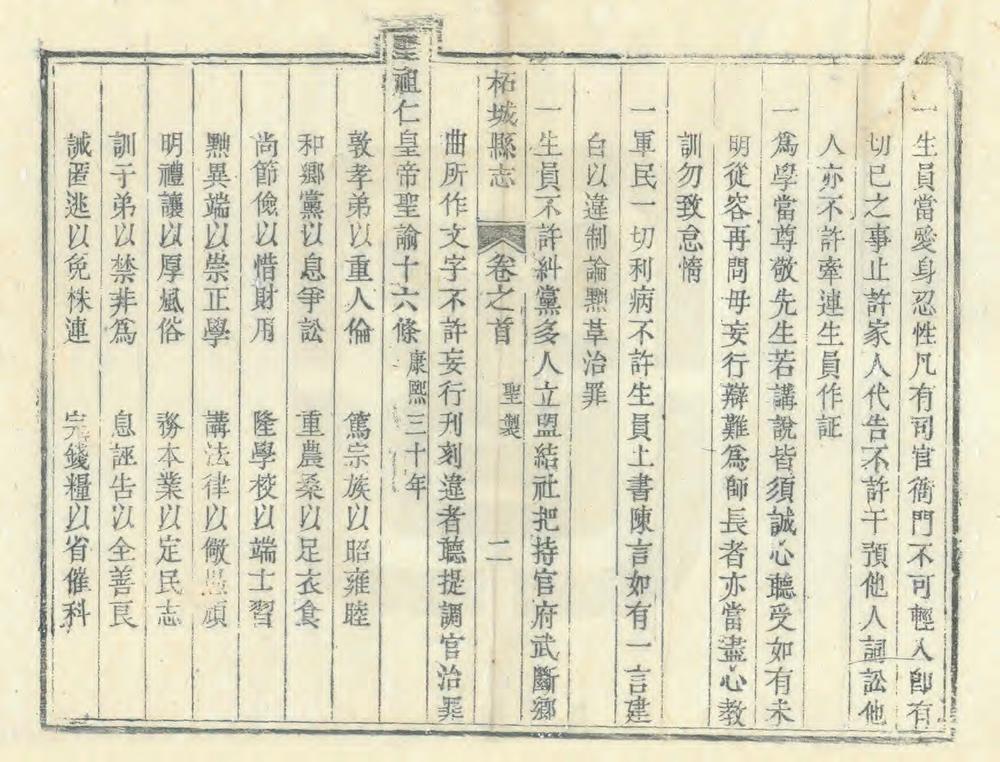 一生員當愛身忍性凡有司官衙門不可輕入卽有
切已之事止許家人代告不許干預他人詞訟他
人亦不許牽連生員作証
一爲學當尊敬先生若講說皆須誠心聽受如有未
明從容再問毋妄行辯難爲師長者亦當盡心教
訓勿致怠惰
一軍民一切利病不許生員上書陳言如有一言建
白以違制論黜革治罪
一生員不許糾黨多人立盟結社把持官府武斷鄉
柘城縣志 卷之首 聖製 二
曲所作文字不許妄行刊刻違者聽提調官治罪
聖祖仁皇帝聖諭十六條 康熙三十年
敦孝弟以重人倫 篤宗族以昭雍睦
和鄉黨以息爭訟 重農桑以足衣食
尚節儉以惜財用 隆學校以端士習
黜異端以崇正學 講法律以儆愚頑
明禮讓以厚風俗 務本業以定民志
訓子弟以禁非爲 息誣告以全善良
誡匿逃以免株連 完錢糧以省催科